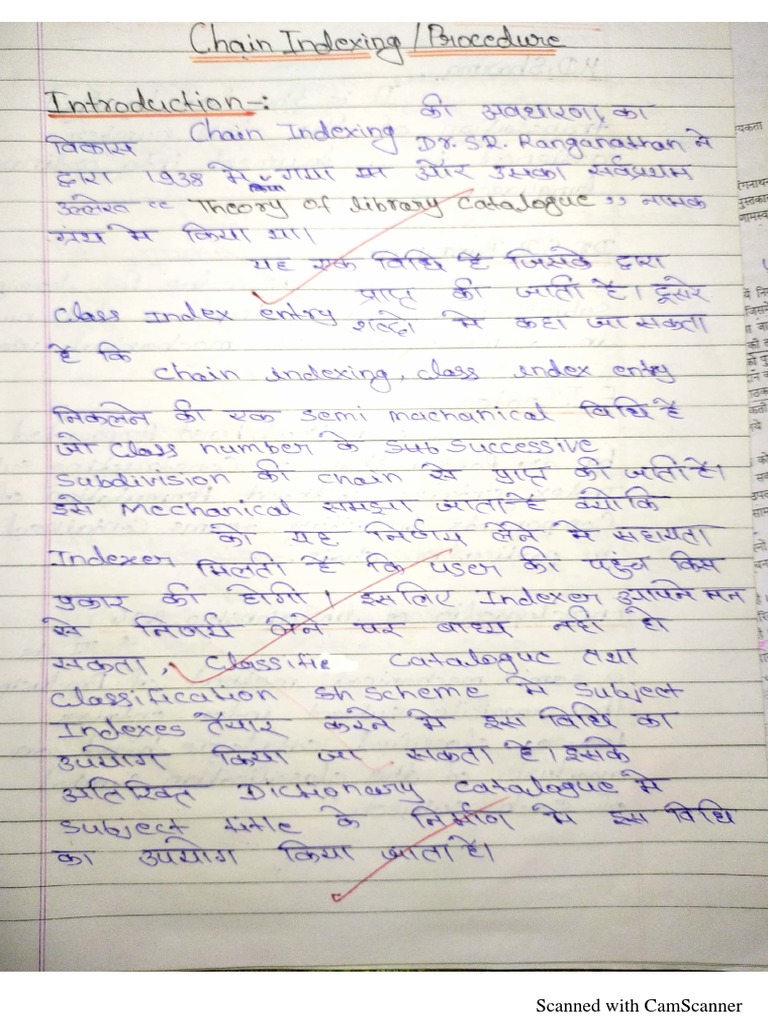 Chain Indexing / Procedure
Introduction-:
की अवधारणा का
विकास Chain Indexing Dr. S.R. Ranganathan ने
द्वारा 1938 में गया था और उसका सर्वप्रथम
उल्लेख "Theory of library Catalogue" नामक
ग्रंथ में किया था।
यह एक विधि है जिसके द्वारा
Class Index entry प्राप्त की जाती है। दूसरे
शब्दो में कहा जा सकता
है कि
Chain indexing, class index entry
निकलने की एक semi machanical विधि है
जो Class number के sub successive
subdivision की chain से प्राप्त की जाती है।
इसे Mechanical समझा जाता है क्योकि
को यह निर्णय लेने मे सहायता
Indexer मिलती है कि user की पहुंच किस
प्रकार की होगी। इसलिए Indexer अपने मन
से निर्णय लेने पर बाध्य नही हो
सकता, Classific Catalogue तथा
Classification sh scheme में subject
Indexes तैयार करने में इस विधि का
उपयोग किया जा सकता है। इसके
अतिरिक्त Dictionary Catalogue मे
subject title के निर्माण मे इस विधि
का उपयोग किया जाता है।
Scanned with CamScanner